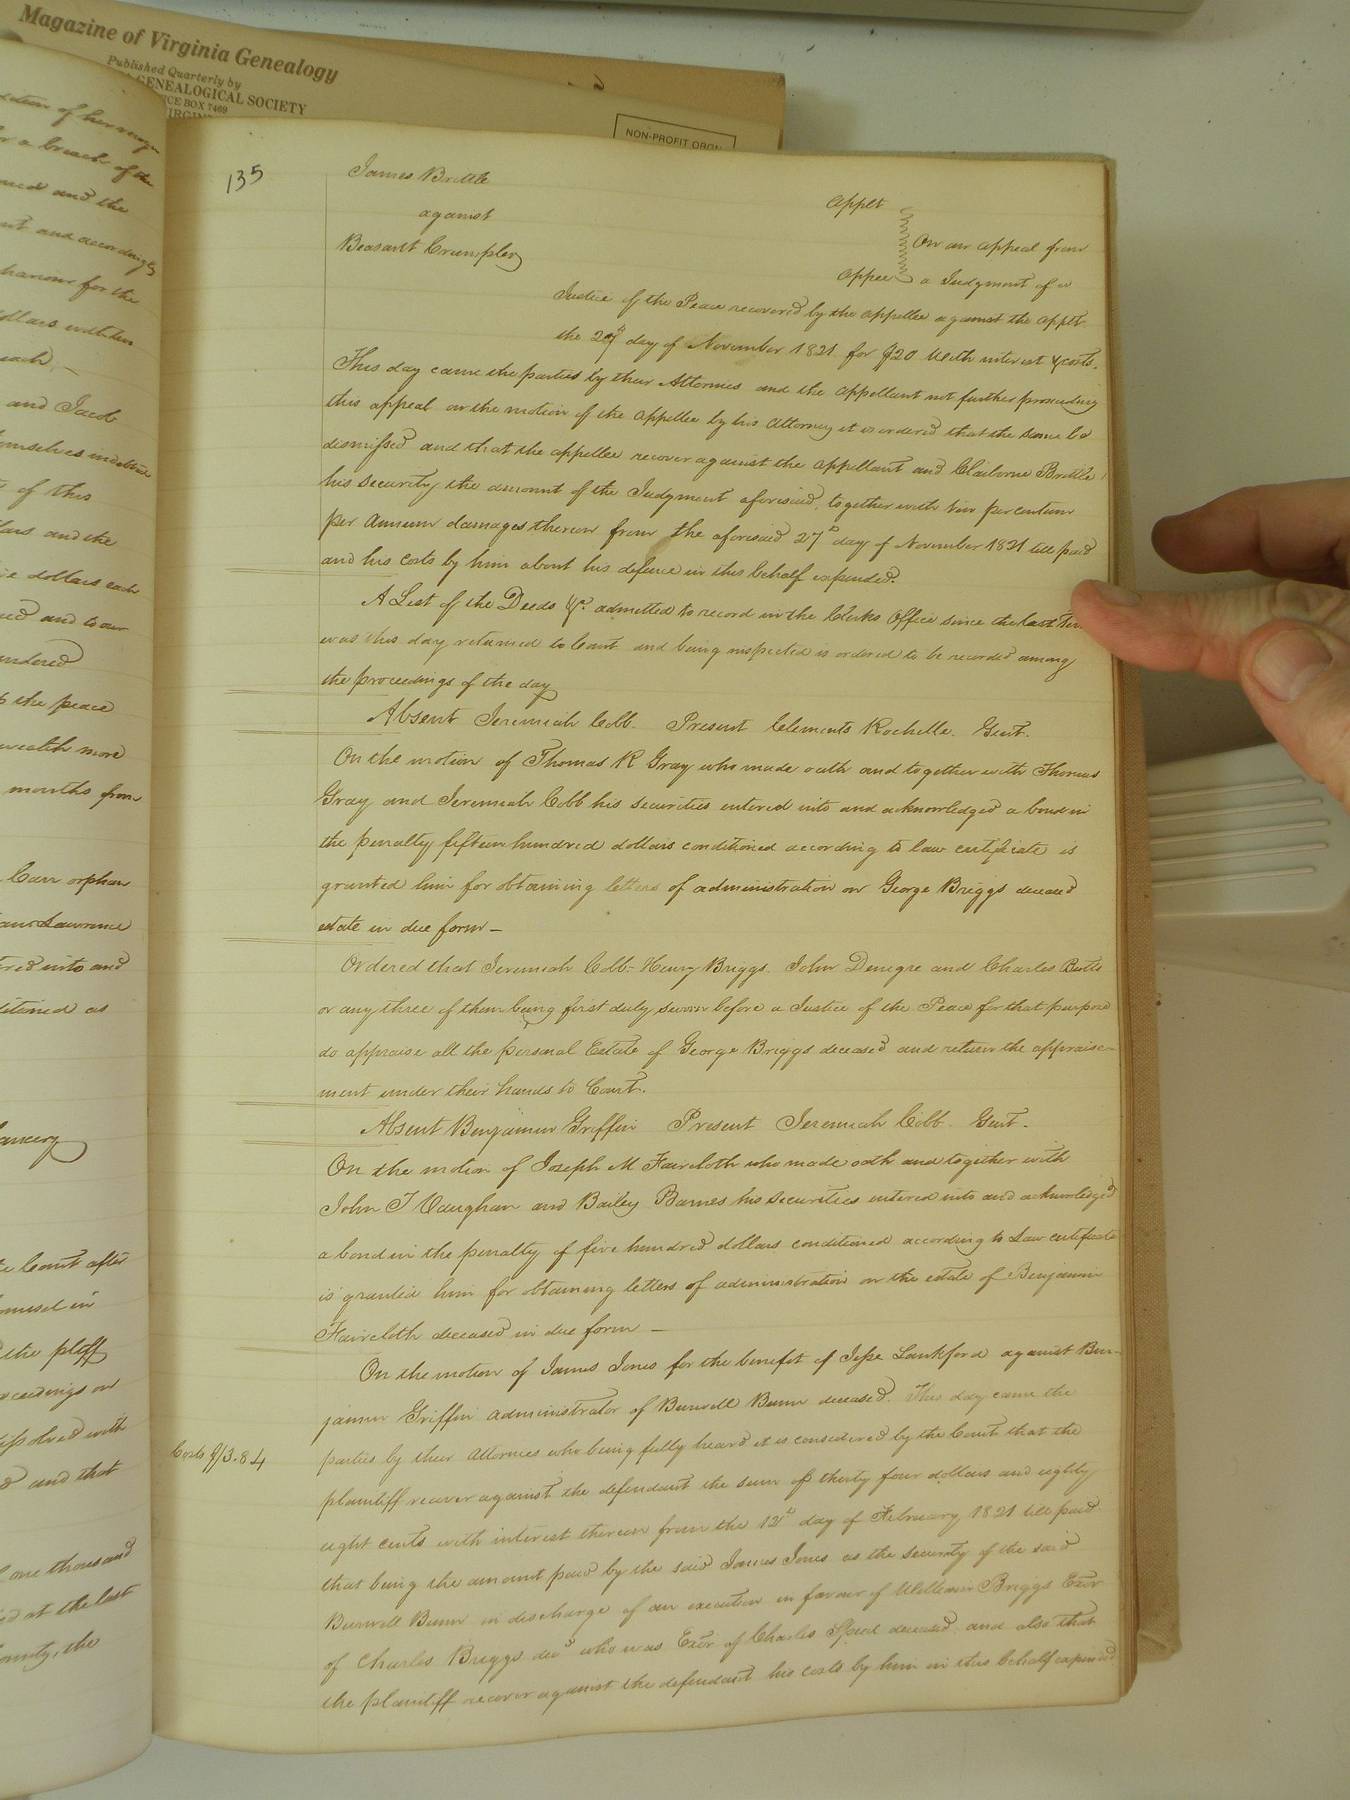 Magazine of Virginia Genealogy
Published Quarterly by
GENEALOGICAL SOCIETY
BOX 7469
NON-PROFIT ORGN
135
James Brittle Applt
against
Beasant Crumpler Appee
On an appeal from
a Judgment of a
Justice of the Peace recovered by the appellee against the applt
the 27th day of November 1821 for $20 With interest & costs.
This day came the parties by their Attornies and the appellant not further prosecuting
this appeal on the motion of the appellee by his attorney it is ordered that the same be
dismissed and that the appellee recover against the appellant and Claiborne Brittle
his security the amount of the Judgment aforesaid, together with ten per centum
per Annum damages thereon from the aforesaid 27th day of November 1821 till paid
and his costs by him about his defence in this behalf expended.
A List of the Deeds &c. admitted to record in the Clerks Office since the last Term
was this day returned to Court and being inspected is ordered to be recorded among
the proceedings of the day
Absent Jeremiah Cobb. Present Clements Rochelle. Gent.
On the motion of Thomas R Gray who made oath and together with Thomas
Gray and Jeremiah Cobb his securities entered into and acknowledged a bond in
the penalty fifteen hundred dollars conditioned according to law certificate is
granted him for obtaining letters of administration on George Briggs deceased
estate in due form—
Ordered that Jeremiah Cobb Henry Briggs. John Denegre and Charles Butts
or any three of them being first duly sworn before a Justice of the Peace for that purpose
do appraise all the personal Estate of George Briggs deceased and return the appraise-
ment under their hands to Court.
Absent Benjamin Griffin Present Jeremiah Cobb. Gent.
On the motion of Joseph M Faircloth who made oath and together with
John T Vaughan and Bailey Barnes his securities entered into and acknowledged
a bond in the penalty of five hundred dollars conditioned according to Law certificate
is granted him for obtaining letters of administration on the estate of Benjamin
Faircloth deceased in due form —
On the motion of James Jones for the benefit of Jesse Lankford against Ben-
jamin Griffin administrator of Burwell Bunn deceased. This day came the
Costs $3.84
parties by their Attornies who being fully heard it is considered by the Court that the
plaintiff recover against the defendant the sum of thirty four dollars and eighty
eight cents with interest thereon from the 13th day of February 1821 till paid
that being the amount paid by the said James Jones as the security of the said
Burwell Bunn in discharge of an execution in favour of William Briggs Exor
of Charles Briggs decd who was Exor of Charles Speed deceased. and also that
the plaintiff recover against the defendant his costs by him in this behalf expended